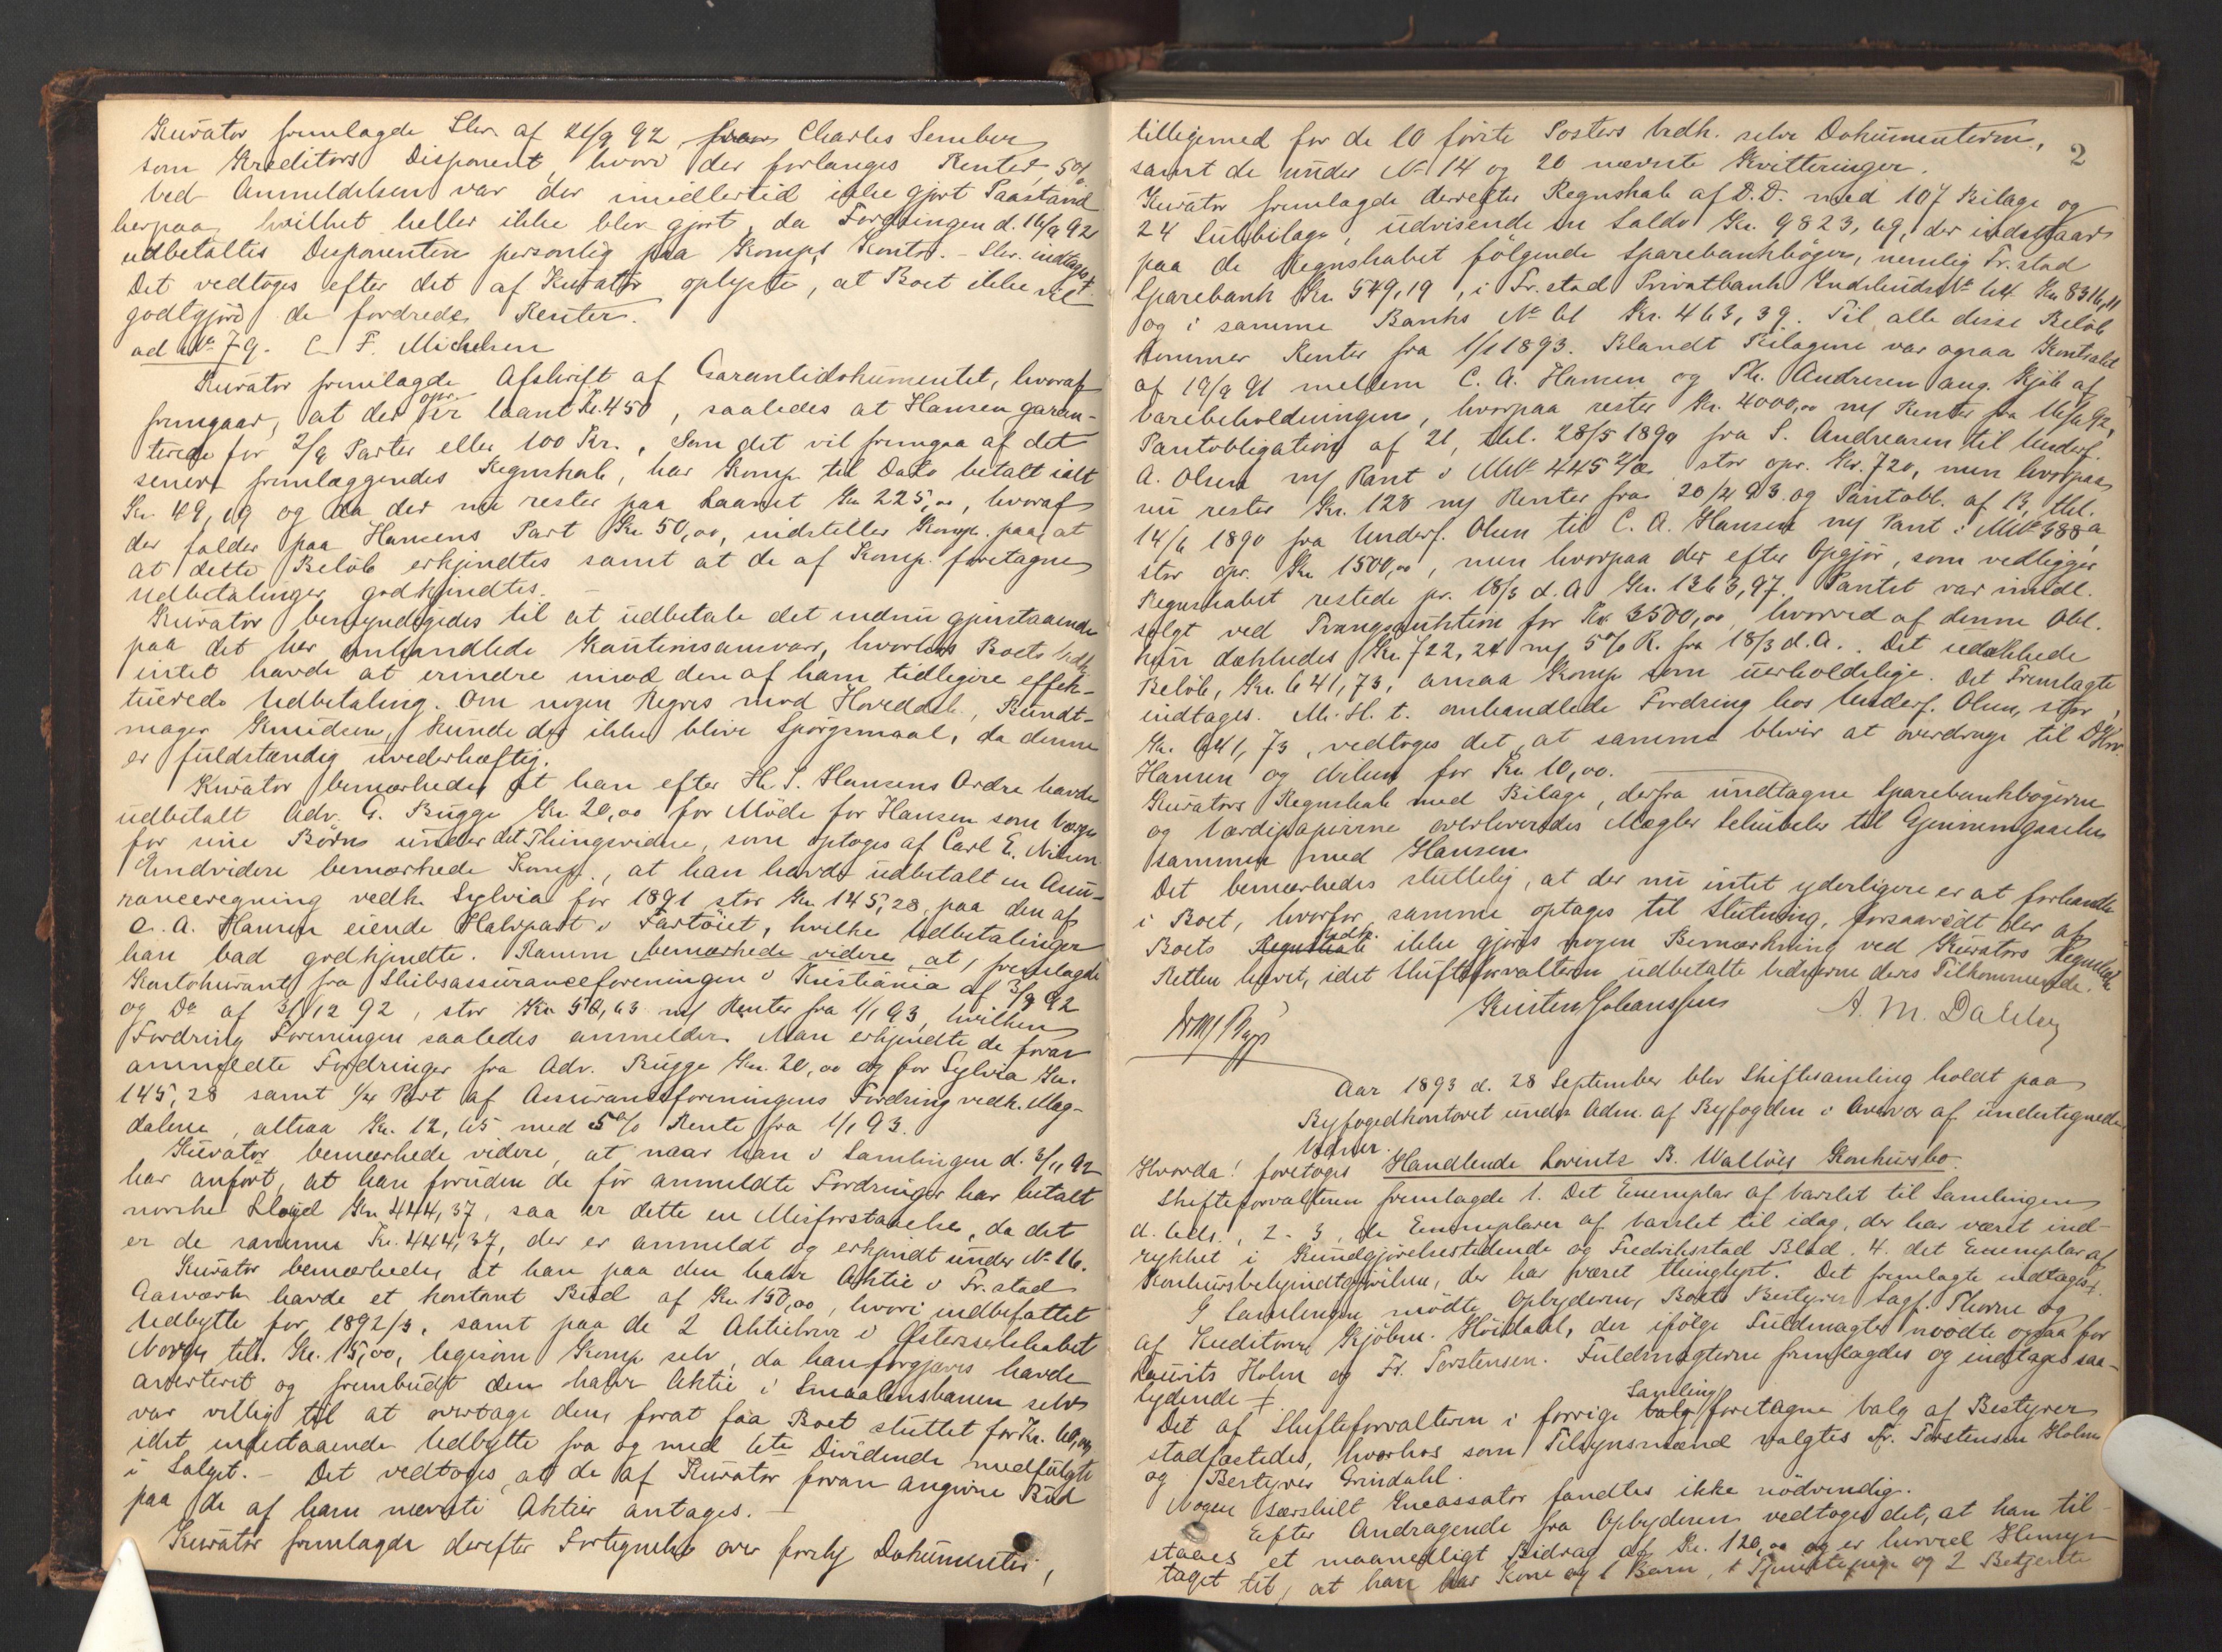 Kurator fremlagde Skr. af 21/9 92 fra Charles Sember
som Kreditors Disponent, hvori der forlanges Renter 5%.
Ved Anmeldelsen var der imidlertid ikke gjort Paastand
herpaa, hvilket heller ikke blev gjort, da Fordringen d. 16/9 92
udbetaltes Disponenten personlig paa Komp.s Kontor. - Skr. indtages.
Det vedtoges efter det af Kurator oplyste, at Boet ikke vil
godtgjøre de fordrede Renter.
ad No 79. C. F. Michelsen
Kurator fremlagde Afskrift af Garantidokumentet, hvoraf
fremgaar, at der opr. er laant Kr. 450, saaledes at Hansen garan-
terede for 2/9 Parter eller 100 Kr., Som det vil fremgaa af det
senere fremlæggendes Regnskab, har Komp. til Dato betalt ialt
Kr. 49,19 og da der nu rester paa Laanet Kr 225,00, hvoraf
der falder paa Hansens Part Kr 50,00, indstiller Komp. paa, at
at dette Beløb erkjendtes samt at de af Komp. foretagne
Udbetalinger godkjendtes. -
Kurator bemyndigedes til at udbetale det endnu gjenstaaende
paa det her omhandlede Kautionsansvar, hvorhos Boets Vedk.
intet havde at erindre imod den af ham tidligere effek-
tuerede Udbetaling. Om nogen Regres mod Hoveddeb., Bundt-
mager Knudsen, kunde der ikke blive Spørgsmaal, da denne
er fuldstændig uvederhæftig.
Kurator bemærkede, at han efter H. S. Hansens Ordre havde
udbetalt Adv. G. Bugge Kr. 20,00 for Møde for Hansen som Værge
for sine Børn under det Thingsvidne, som optoges af Carl E. Nilsen
Endvidere bemærkede Komp., at han havde udbetalt en Assu-
ranceregning vedk. Sylvia for 1891 stor Kr 145,28, paa den af
C. A. Hansen eiende Halvpart i Fartøiet, hvilke Udbetalinger
han bad godkjendte. Samme bemærkede videre, at, fremlagde
Kontokurant fra Skibsassuranceforeningen i Kristiania af 3/9 92
og Do af 31/12 92, stor Kr. 50,63 m/ Renter fra 1/1 93, hvilken
Fordring Foreningen saaledes anmelder. Man erkjendte de foran
anmeldte Fordringer fra Adv. Bugge Kr. 20,00 og for Sylvia Kr.
145,28 samt 1/4 Part af Assuranceforeningens Fordring vedk. Mag-
dalena, altsaa Kr. 12,65 med 5% Rente fra 1/1 93.
Kurator bemærkede videre, at naar han i Samlingen d. 3/11 92
har anført, at han foruden de før anmeldte Fordringer har betalt
norske Lloyd Kr 444,37, saa er dette en Misforstaaelse, da det
er de samme Kr. 444,37, der er anmeldt og erkjendt under No 16.
Kurator bemærkede, at han paa den halve Aktie i Fr.stad
Gasværk havde et kontant Bud af Kr. 150,00, hvori indbefattet
Udbytte for 1892/3, samt paa de 2 Aktiebreve i Østersselskabet
Norge tils. Kr. 15,00, ligesom Komp. selv, da han forgjæves havde
averteret og frembudt den halve Aktie i Smaalensbanen selv
var villig til at overtage den, forat faa Boet sluttet for Kr. 60,00
idet indestaaende Udbytte fra og med 6te Dividende medfulgte
i Salget. - Det vedtoges, at de af Kurator foran angivne Bud
paa de af ham nævnte Aktier antages. -
Kurator fremlagde derefter Fortegnelse over forskj Dokumenter,
2
tilligemed for de 10 første Posters Vedk. selve Dokumenterne,
samt de under No 14 og 20 nævnte Kvitteringer.
Kurator fremlagde derrefter Regnskab af D.D. med 107 Bilage og
24 Subbilage, udvisende en Saldo Kr. 9823,69, der indestaar
paa de Regnskabet følgende Sparebankbøger, nemlig Fr.stad
Sparebank Kr. 549,19, i Fr.stad Privatbank Indskuds No 64 Kr 8316,11
og i samme Banks No 61 Kr. 463,39. Til alle disse Beløb
kommer Renter fra 1/1 1893. Blandt Bilagene var ogsaa Kontrakt
af 19/9 91 mellem C. A. Hansen og Th. Andresen ang. Kjøb af
Varebeholdningen, hvorpaa rester Kr. 4000,00 m/ Renter fra
Pantobligation af 21, thl. 28/5 1890 fra S. Andreasen til Underf.
A. Olsen m/ Pant i MNo 445 stor opr. Kr. 720, men hvorpaa
nu rester Kr. 128 m/ Renter fra 20/2 93 og Pantobl. af 13, thl.
14/6 1890 fra Underf. Olsen til C. A. Hansen m/ Pant i MNo 388a
stor opr. Kr 1500,00, men hvorpaa der efter Opgjør, som vedligger
Regnskabet restede pr. 18/3 d. A. Kr. 1363,97. Pantet var imidl.
solgt ved Tvangsauktion for Kr 3500,00, hvorved af denne Obl.
kun dækkedes Kr. 722,24 m/ 5% R. fra 18/3 d.A.. Det udækkede
Beløb, Kr. 641,73, ansaa Komp. som uerholdelige. Det Fremlagte
indtages. M. H. t. omhandlede Fordring hos Underf. Olsen, stor
Kr. 641,73, vedtoges det, at samme bliver at overdrage til
Hansen og Nilsen for Kr 10,00.
Kurators Regnskab med Bilage, derfra undtagne Sparebankbøgerne
og Værdipapirerne overleveredes Mægler Schübeler til Gjennemgaaelse
sammen med Hansen.
Det bemærkedes sluttelig, at der nu intet yderligere er at forhandle
i Boet, hvorfor samme optages til Slutning, forsaavidt der af
Boets Vedk. ikke gjøres nogen Bemærkning ved Kurators Regnskab
Retten hævet, idet Skifteforvalteren udbetalte Vidnerne deres Tilkommende.
Kristen Johanssen A. M. Dahlby
Aar 1893 d. 28 September blev Skiftesamling holdt paa
Byfogedkontoret under Adm. af Byfogden i Overvær af undertegnede
Vidner.
Hvorda! foretoges Handlende Lorentz B. Walløes Konkursbo.
Skifteforvalteren fremlagde 1. Det Exemplar af Varslet til Samlingen
d. 6 ds., 2-3, de Exemplarer af Varslet til idag, der har været ind-
rykket i Kundgjørelsestidende og Fredriksstad Blad. 4. det Exemplar af
Konkursbekjendtgjørelsen, der har været thinglyst. Det fremlagte indtages.
I Samlingen mødte Opbyderen, Boets Bestyrer Sagf. Thorne og
af Kreditorer Kjøbm. Høidahl, der ifølge Fuldmagter mødte ogsaa for
Laurits Holm og Fr. Torstensen. Fuldmagterne fremlagdes og indtages saa-
lydende
Det af Skifteforvalteren i forrige Samling foretagne Valg af Bestyrer
stadfæstedes, hvorhos som Tilsynsmænd valgtes Fr. Torstensen Holm
og Bestyrer Grindahl.
Nogen særskilt Incassator fandtes ikke nødvendig.
Efter Andragende fra Opbyderen vedtoges det, at han til-
staaes et maanedligt Bidrag af Kr. 120,00 og er herved Hensyn
taget til, at han har Kone og 1 Barn, 1 Tjenestepige og 2 Betjente